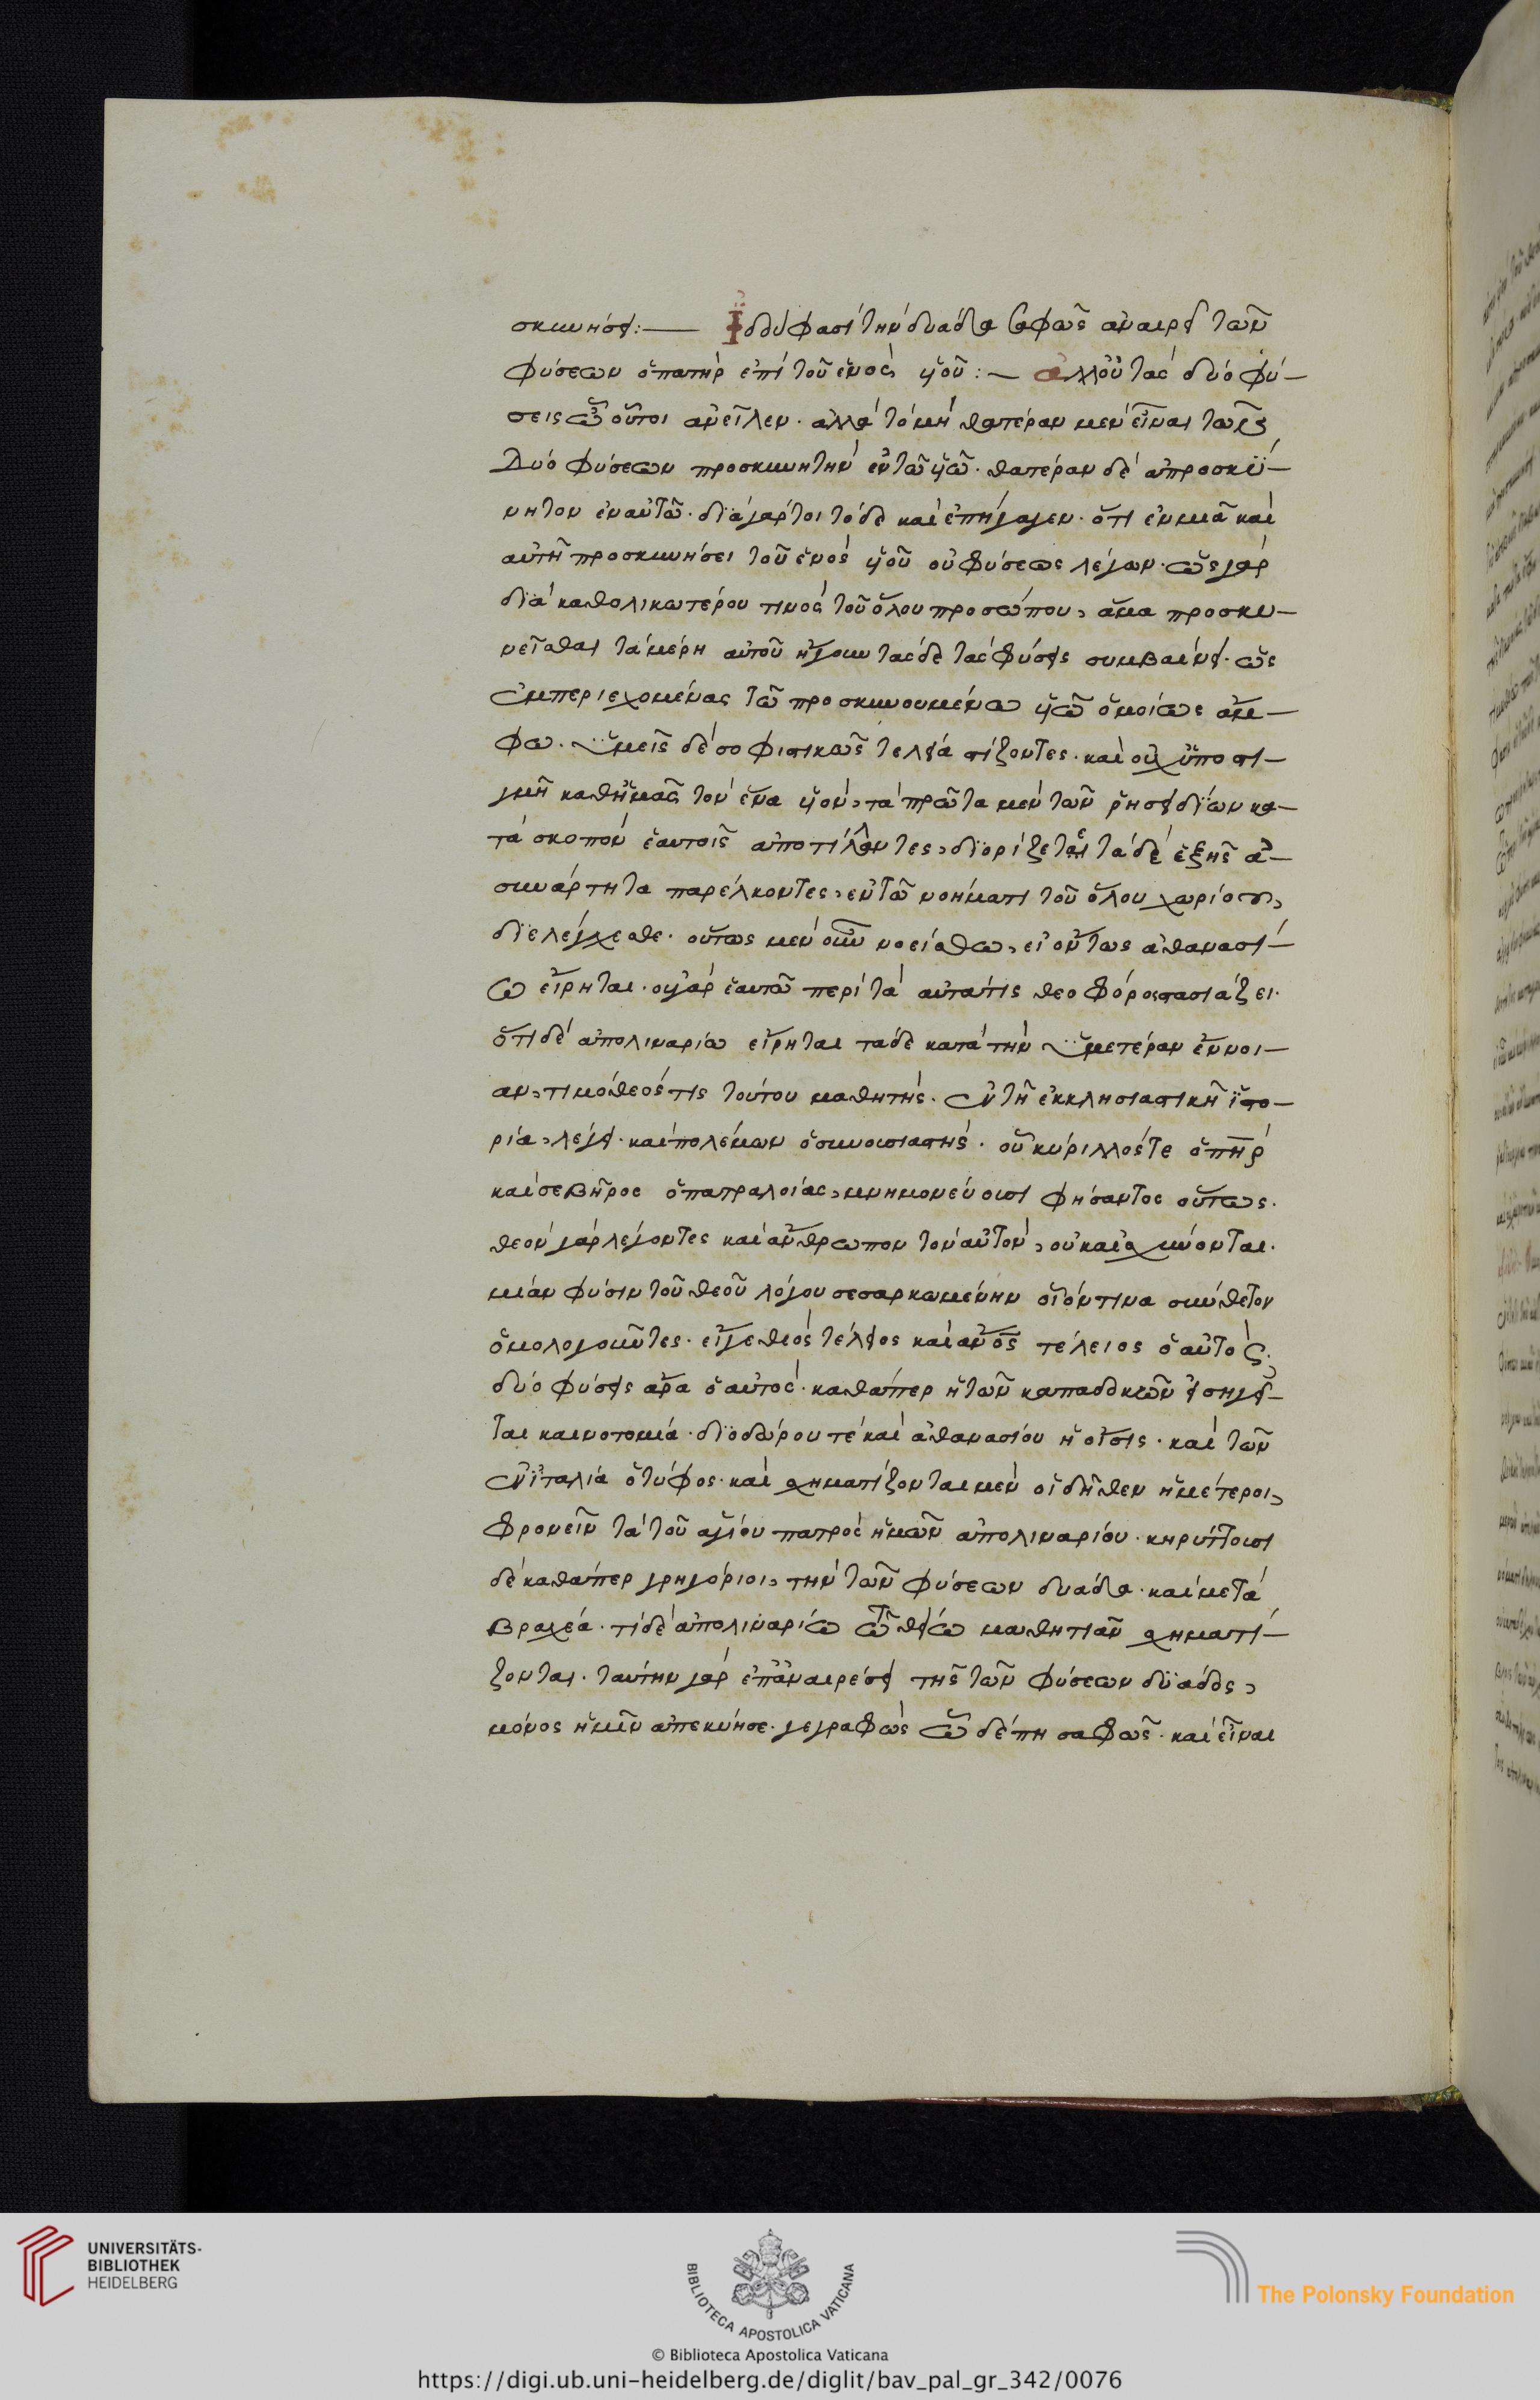 σκυνήσει:— Ἰδού φασὶ τὴν δυάδα σαφῶς ἀναιρεῖ τῶν
φύσεων ὁ πατὴρ ἐπὶ τοῦ ἑνὸς υἱοῦ:— ἀλλ' οὐ τὰς δύο φύ-
σεις ὦ οὗτοι ἀνεῖλεν. ἀλλὰ τὸ μὴ θατέραν μὲν εἶναι τῶν
δύο φύσεων προσκυνητὴν ἐν τῶ υἱῶ. θατέραν δὲ ἀπροσκύ-
νητον ἐν αὐτῶ. διὰ γάρ τοι τόδε καὶ ἐπήγαγεν. ὅτι ἐν μιᾶ καὶ
αὐτῆ προσκυνήσει τοῦ ἑνὸς υἱοῦ οὐ φύσεως λέγων. ὡς γὰρ
διὰ καθολικωτέρου τινὸς τοῦ ὅλου προσώπου, ἅμα προσκυ-
νεῖσθαι τὰ μέρη αὐτοῦ ἤγουν τάσδε τὰς φύσεις συμβαίνει. ὡς
ἐμπεριεχομένας τῶ προσκυνουμένω υἱῶ ὁμοίως ἄμ-
φω. ὑμεῖς δὲ σοφιστικῶς τελθάπίζοντες. καὶ οὐχ ὑποστι-
γμῆ καθ' ἡμᾶς τὸν ἕνα υἱὸν, τὰ πρῶτα μὲν τῶν ῥησειδίων κα-
τὰ σκοπὸν ἑαυτοῖς ἀποτίλλοντες, διορίζεται τὰ δὲ ἑξῆς ἀ-
συνάρτητα παρέλκοντες, ἐν τῶ νοήματι τοῦ ὅλου χωρίου,
διελέγχεσθε. οὕτως μὲν οὖν νοείσθω, εἰ ὄντως ἀθανασί-
ω εἴρηται. οὐ γὰρ ἑαυτῶ περὶ τὰ αὐτά τις θεοφόρος στασιάζει.
ὅτι δὲ ἀπολιναρίω εἴρηται τάδε κατὰ τὴν ὑμετέραν ἔννοι-
αν, τιμόθεός τις τούτου μαθητής. ἐν τῆ ἐκκλησιαστικῆ ἱστο-
ρία, λέγει. καὶ πολέμων ὁ συνουσιαστής. οὗ κύριλλός τε ὁ πηρ
καὶ σεβῆρος ὁ πατραλοίας, μνημονεύουσι φήσαντος οὕτως.
θεὸν γὰρ λέγοντες καὶ ἄνθρωπον τὸν αὐτὸν, οὐκ αἰσχύνονται.
μίαν φύσιν τοῦ θεοῦ λόγου σεσαρκωμένην οἷόν τινα σύνθετον
ὁμολογοῦντες. εἴγε θεὸς τέλειος καὶ ανος τέλειος ὁ αὐτός.
δύο φύσεις ἄρα ὁ αὐτός. καθάπερ ἡ τῶν καππαδοκῶν εἰσηγεῖ-
ται καινοτομία. διοδώρου τὲ καὶ ἀθανασίου ἡ οἴησις. καὶ τῶν
ἐν ἰταλία ὁ τύφος. καὶ σχηματίζονται μὲν οἱ δῆθεν ἡμέτεροι,
φρονεῖν τὰ τοῦ ἁγίου πατρὸς ἡμῶν ἀπολιναρίου. κηρύττουσι
δὲ καθάπερ γρηγόριοι, τὴν τῶν φύσεων δυάδα. καὶ μετὰ
βραχέα. τί δὲ ἀπολιναρίω τῶ θείω μαθητιᾶν σχηματί-
ζονται. ταύτην γὰρ ἐπ' ἀναιρέσει τῆς τῶν φύσεων δυάδος,
μόνος ἡμῖν ἀπεκύησε. γεγραφὼς ὧδέ πη σαφῶς. καὶ εἶναι
UNIVERSITÄTS-
BIBLIOTHEK
HEIDELBERG
BIBLIOTECA APOSTOLICA VATICANA
The Polonsky Foundation
© Biblioteca Apostolica Vaticana
https://digi.ub.uni-heidelberg.de/diglit/bav_pal_gr_342/0076